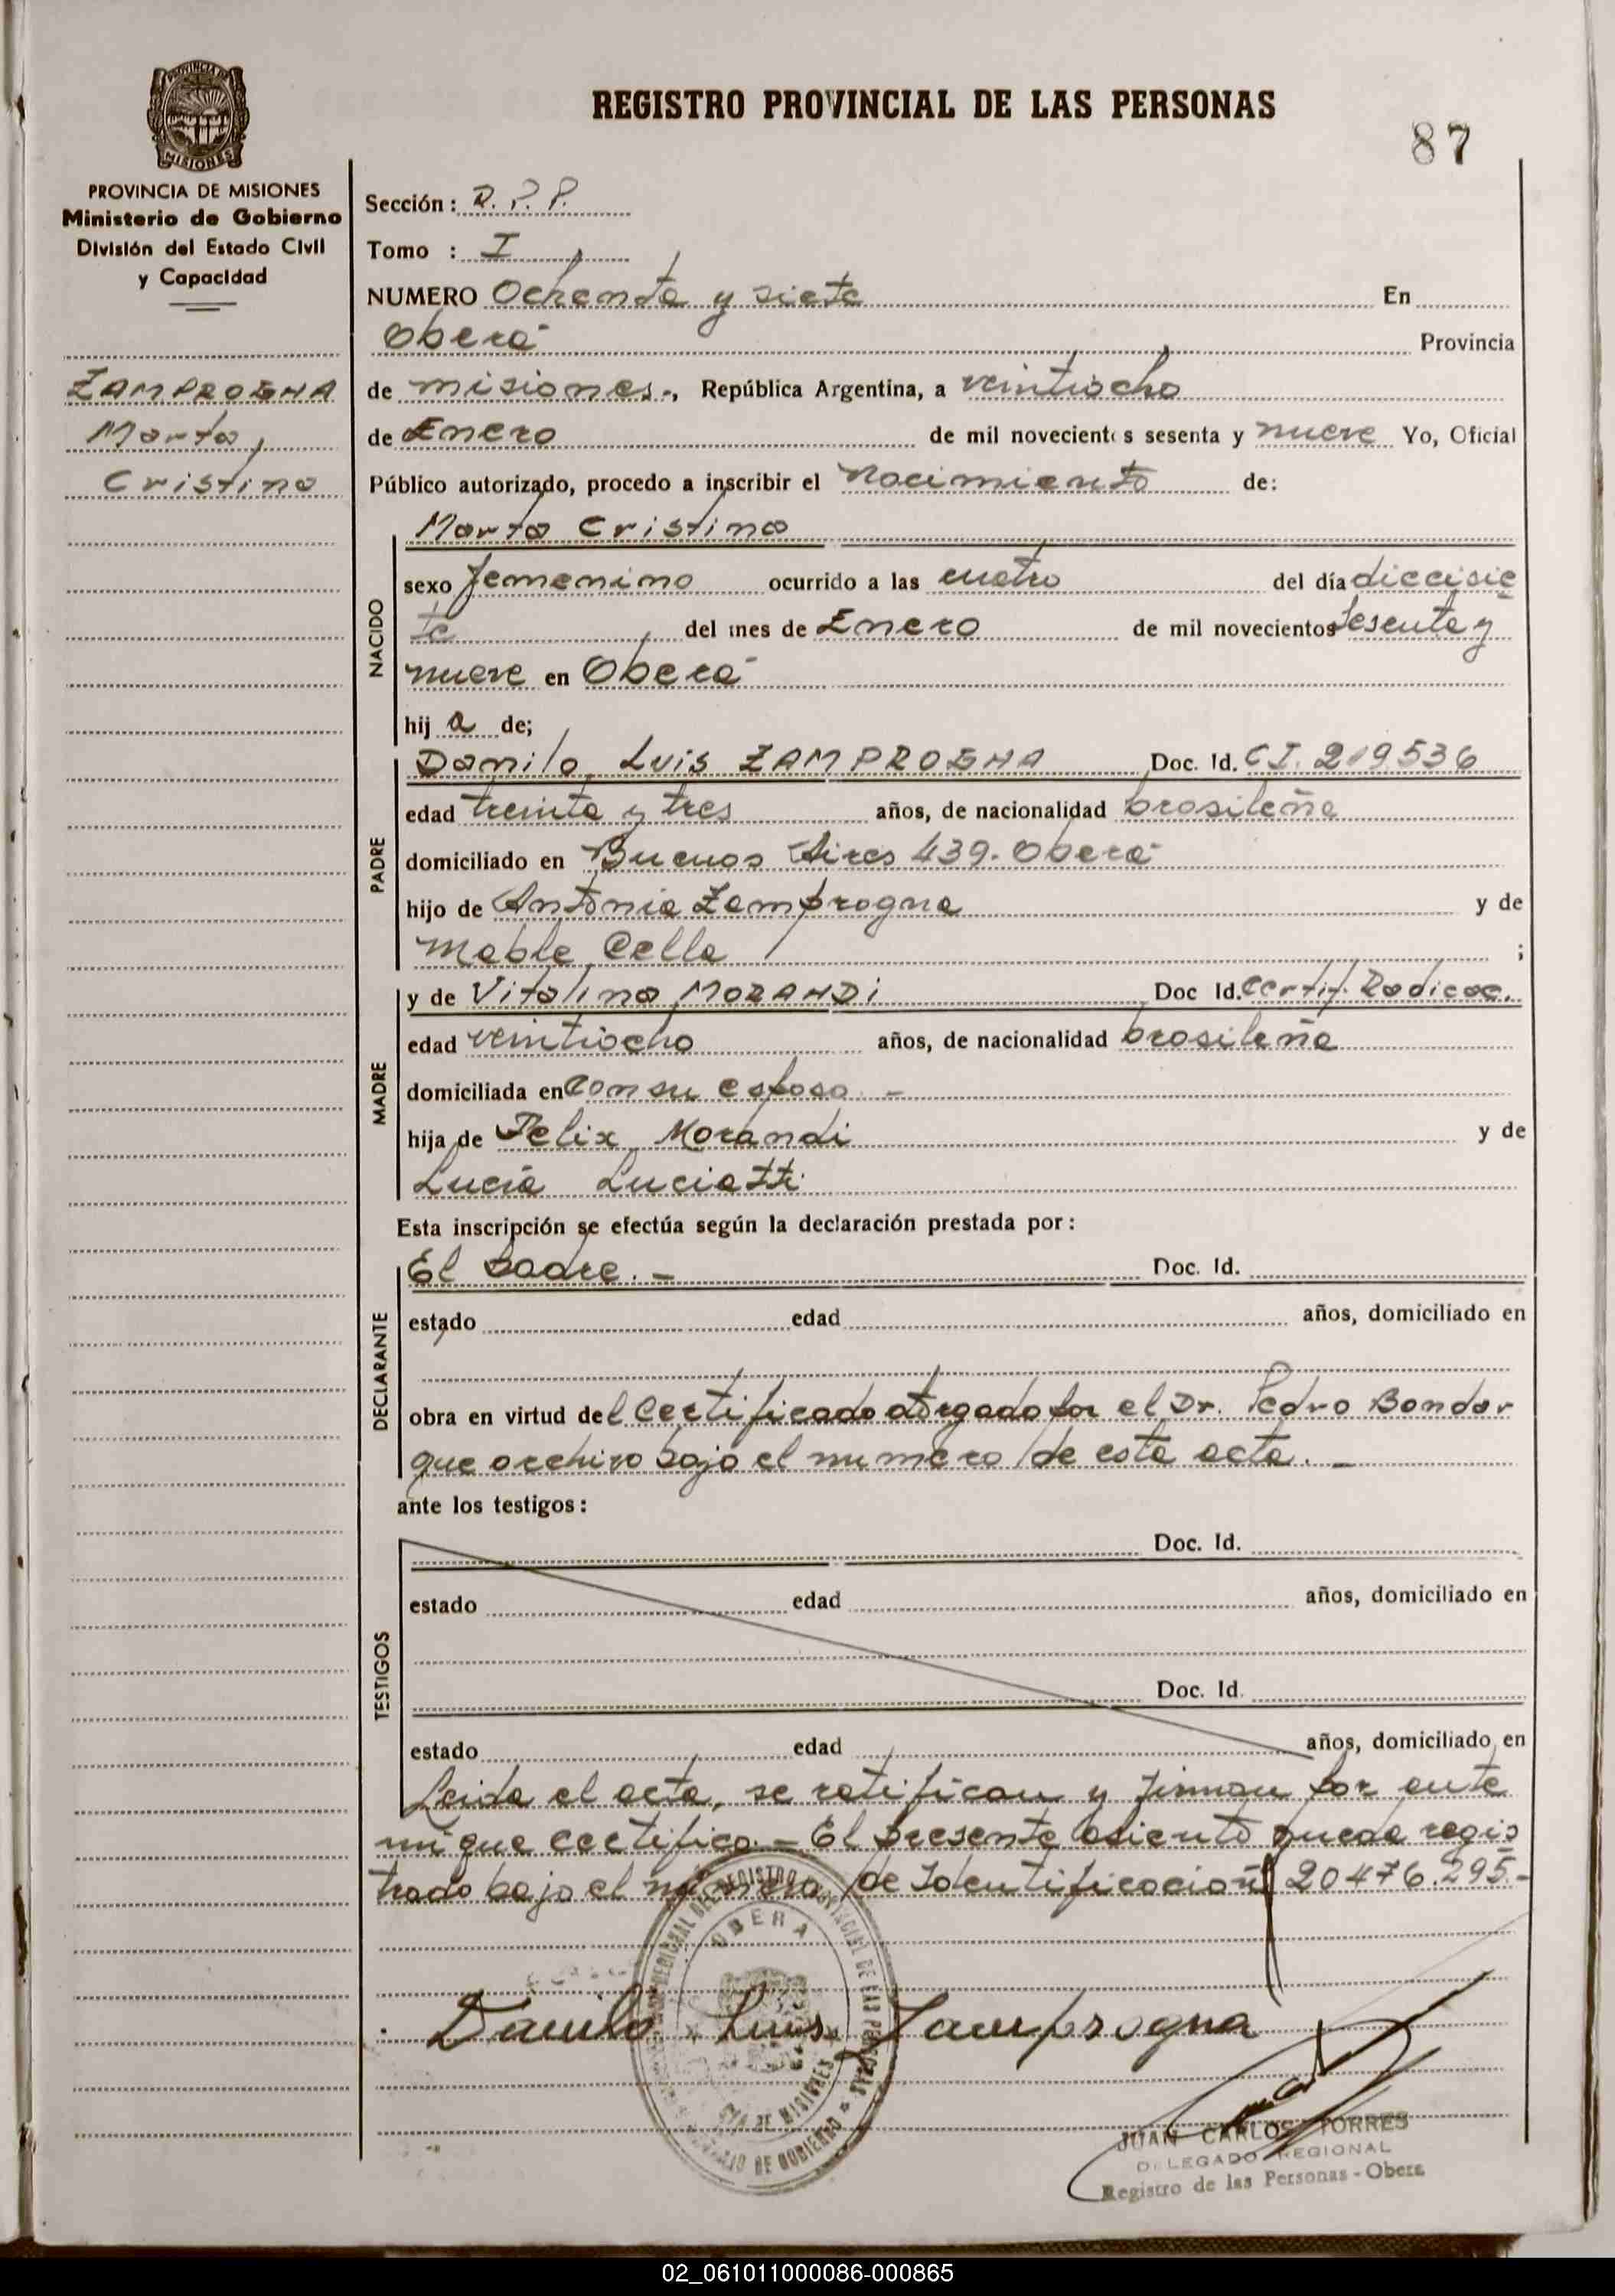 REGISTRO PROVINCIAL DE LAS PERSONAS
87
PROVINCIA DE MISIONES
MISIONES
PROVINCIA DE MISIONES
Ministerio de Gobierno
División del Estado Civil
y Capacidad
ZAMPROGNA
Marta,
Cristina
Sección: R. P. P.
Tomo : I
NUMERO Ochenta y siete En
Oberá Provincia
de misiones., República Argentina, a veintiocho
de Enero de mil novecientos sesenta y nueve Yo, Oficial
Público autorizado, procedo a inscribir el Nacimiento de:
NACIDO
Marta Cristina
sexo femenino ocurrido a las cuatro del día diecisie
te del mes de Enero de mil novecientos sesenta y
nueve en Oberá
hij a de;
PADRE
Danilo Luis ZAMPROGNA Doc. Id. CI. 219536
edad treinta y tres años, de nacionalidad brasileña
domiciliado en Buenos Aires 439. Oberá
hijo de Antonio Zamprogna y de
Mable Cella ;
MADRE
y de Vitalina MORANDI Doc Id. Certif. Radicac.
edad veintiocho años, de nacionalidad brasileña
domiciliada en con su esposo. -
hija de Felix Morandi y de
Lucía Luciatti
Esta inscripción se efectúa según la declaración prestada por:
DECLARANTE
El padre. - Doc. Id.
estado edad años, domiciliado en
obra en virtud del Certificado otorgado por el Dr. Pedro Bondar
que archivo bajo el numero de esta acta. -
ante los testigos:
TESTIGOS
Doc. Id.
estado edad años, domiciliado en
Doc. Id.
estado edad años, domiciliado en
Leida el acta, se ratifican y firman por ante
mi que certifico. - El presente asiento queda regis
trado bajo el número de Identificación 20476.295.-
OBERA
Danilo Luis Zamprogna
JUAN CARLOS TORRES
DELEGADO REGIONAL
Registro de las Personas - Obera
02_061011000086-000865